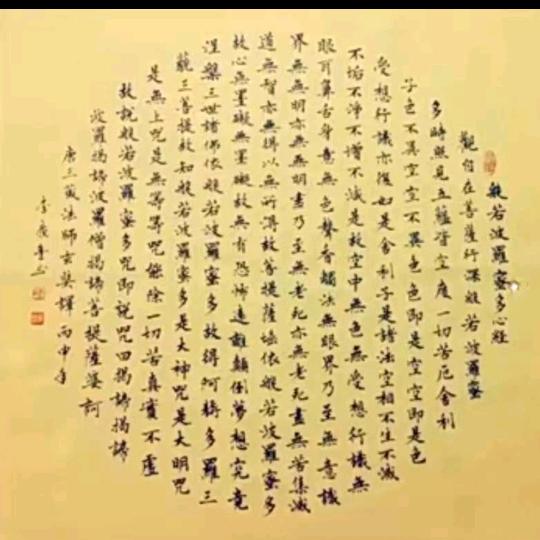 般若波羅蜜多心經
觀自在菩薩行深般若波羅蜜
多時照見五蘊皆空度一切苦厄舍利
子色不異空空不異色色即是空空即是色
受想行識亦復如是舍利子是諸法空相不生不滅
不垢不淨不增不減是故空中無色無受想行識無
眼耳鼻舌身意無色聲香觸法無眼界乃至無意識
界無無明亦無無明盡乃至無老死亦無老死盡無苦集滅
道無智亦無得以無所得故菩提薩埵依般若波羅蜜多
故心無罣礙無罣礙故無有恐怖遠離顛倒夢想究竟
涅槃三世諸佛依般若波羅蜜多故得阿耨多羅三
藐三菩提故知般若波羅蜜多是大神咒是大明咒
是無上咒是無等等咒能除一切苦真實不虛
故說般若波羅蜜多咒即說咒曰揭諦揭諦
波羅揭諦波羅僧揭諦菩提薩婆訶
唐三藏法師玄奘譯丙申年
李